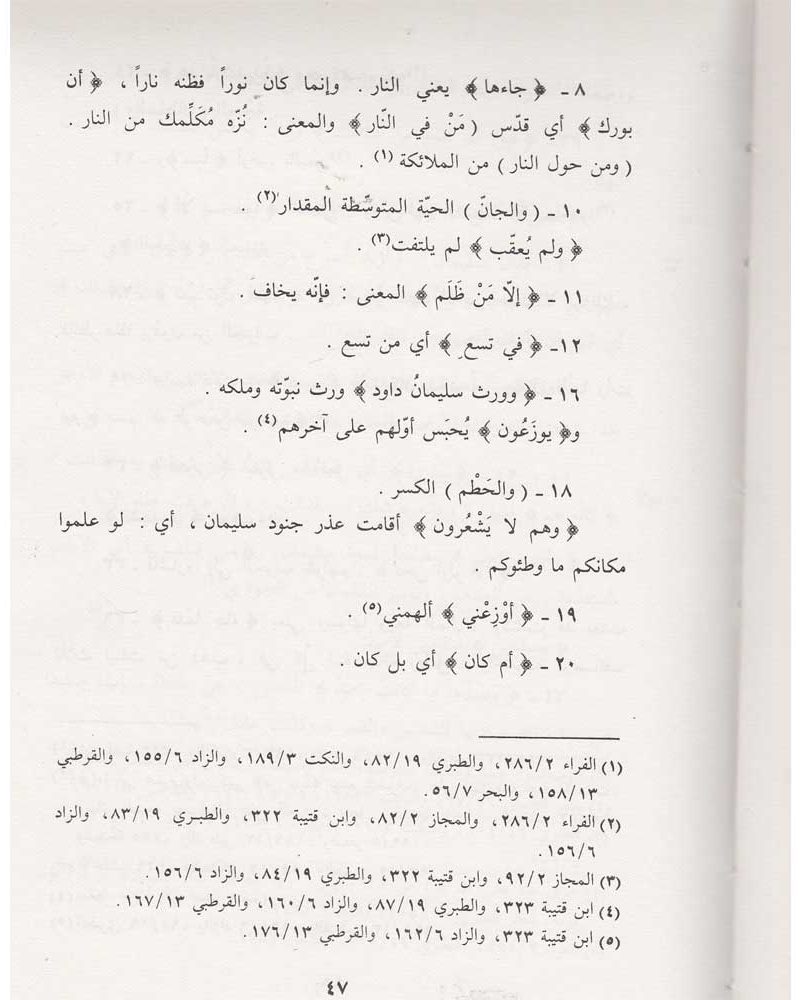 ٨ ـ ﴿ جاءها ﴾ يعني النار . وإنما كان نوراً فظنه ناراً ، ﴿ أن
بورك ﴾ أي قدّس ( مَنْ في النّار ﴾ والمعنى : نُزّه مُكَلِّمك من النار .
( ومن حول النار ) من الملائكة (١) .
١٠ ـ ( والجانّ ) الحيّة المتوسِّطة المقدار (٢) .
﴿ ولم يُعقّب ﴾ لم يلتفت (٣) .
١١ ـ ﴿ إلاّ مَنْ ظَلَم ﴾ المعنى : فإنّه يخاف .
١٢ـ ﴿ في تسع ﴾ أي من تسع .
١٦ ـ ﴿ وورث سليمانُ داود ﴾ ورث نبوّته وملكه .
و﴿ يوزَعُون ﴾ يُحبَس أوّلهم على آخرهم (٤) .
١٨ ـ ( والحَطْم ) الكسر .
﴿ وهم لا يَشْعُرون ﴾ أقامت عذر جنود سليمان ، أي : لو علموا
مكانكم ما وطئوكم .
١٩ ـ ﴿ أوْزِعْني ﴾ ألهمني (٥) .
٢٠ ـ ﴿ أم كان ﴾ أي بل كان .
(١) الفراء ٢٨٦/٢، والطبري ٨٢/١٩، والنكت ١٨٩/٣، والزاد ١٥٥/٦، والقرطبي
١٥٨/١٣، والبحر ٥٦/٧.
(٢) الفراء ٢٨٦/٢، والمجاز ٨٢/٢، وابن قتيبة ٣٢٢، والطبري ٨٣/١٩، والزاد
١٥٦/٦.
(٣) المجاز ٩٢/٢، وابن قتيبة ٣٢٢، والطبري ٨٤/١٩، والزاد ١٥٦/٦.
(٤) ابن قتيبة ٣٢٣، والطبري ٨٧/١٩، والزاد ١٦٠/٦، والقرطبي ١٦٧/١٣.
(٥) ابن قتيبة ٣٢٣، والزاد ١٦٢/٦، والقرطبي ١٧٦/١٣.
٤٧